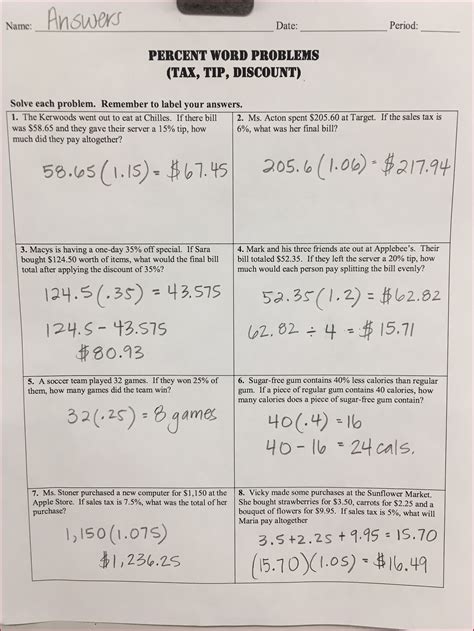 Name: Answers Date: Period:
PERCENT WORD PROBLEMS
(TAX, TIP, DISCOUNT)
Solve each problem. Remember to label your answers.
1. The Kerwoods went out to eat at Chilles. If there bill
was $58.65 and they gave their server a 15% tip, how
much did they pay altogether?
58.65(1.15) = $67.45
2. Ms. Acton spent $205.60 at Target. If the sales tax is
6%, what was her final bill?
205.6(1.06) = $217.94
3. Macys is having a one-day 35% off special. If Sara
bought $124.50 worth of items, what would the final bill
total after applying the discount of 35%?
124.5(.35) = 43.575
124.5 - 43.575
$80.93
4. Mark and his three friends ate out at Applebee's. Their
bill totaled $52.35. If they left the server a 20% tip, how
much would each person pay splitting the bill evenly?
52.35(1.2) = $62.82
62.82 ÷ 4 = $15.71
5. A soccer team played 32 games. If they won 25% of
them, how many games did the team win?
32(.25) = 8 games
6. Sugar-free gum contains 40% less calories than regular
gum. If a piece of regular gum contains 40 calories, how
many calories does a piece of sugar-free gum contain?
40(.4) = 16
40 - 16 = 24 cals.
7. Ms. Stoner purchased a new computer for $1,150 at the
Apple Store. If sales tax is 7.5%, what was the total of her
purchase?
1,150(1.075)
$1,236.25
8. Vicky made some purchases at the Sunflower Market.
She bought strawberries for $3.50, carrots for $2.25 and a
bouquet of flowers for $9.95. If sales tax is 5%, what will
Maria pay altogether
3.5+2.25 + 9.95 = 15.70
(15.70)(1.05) = $16.49